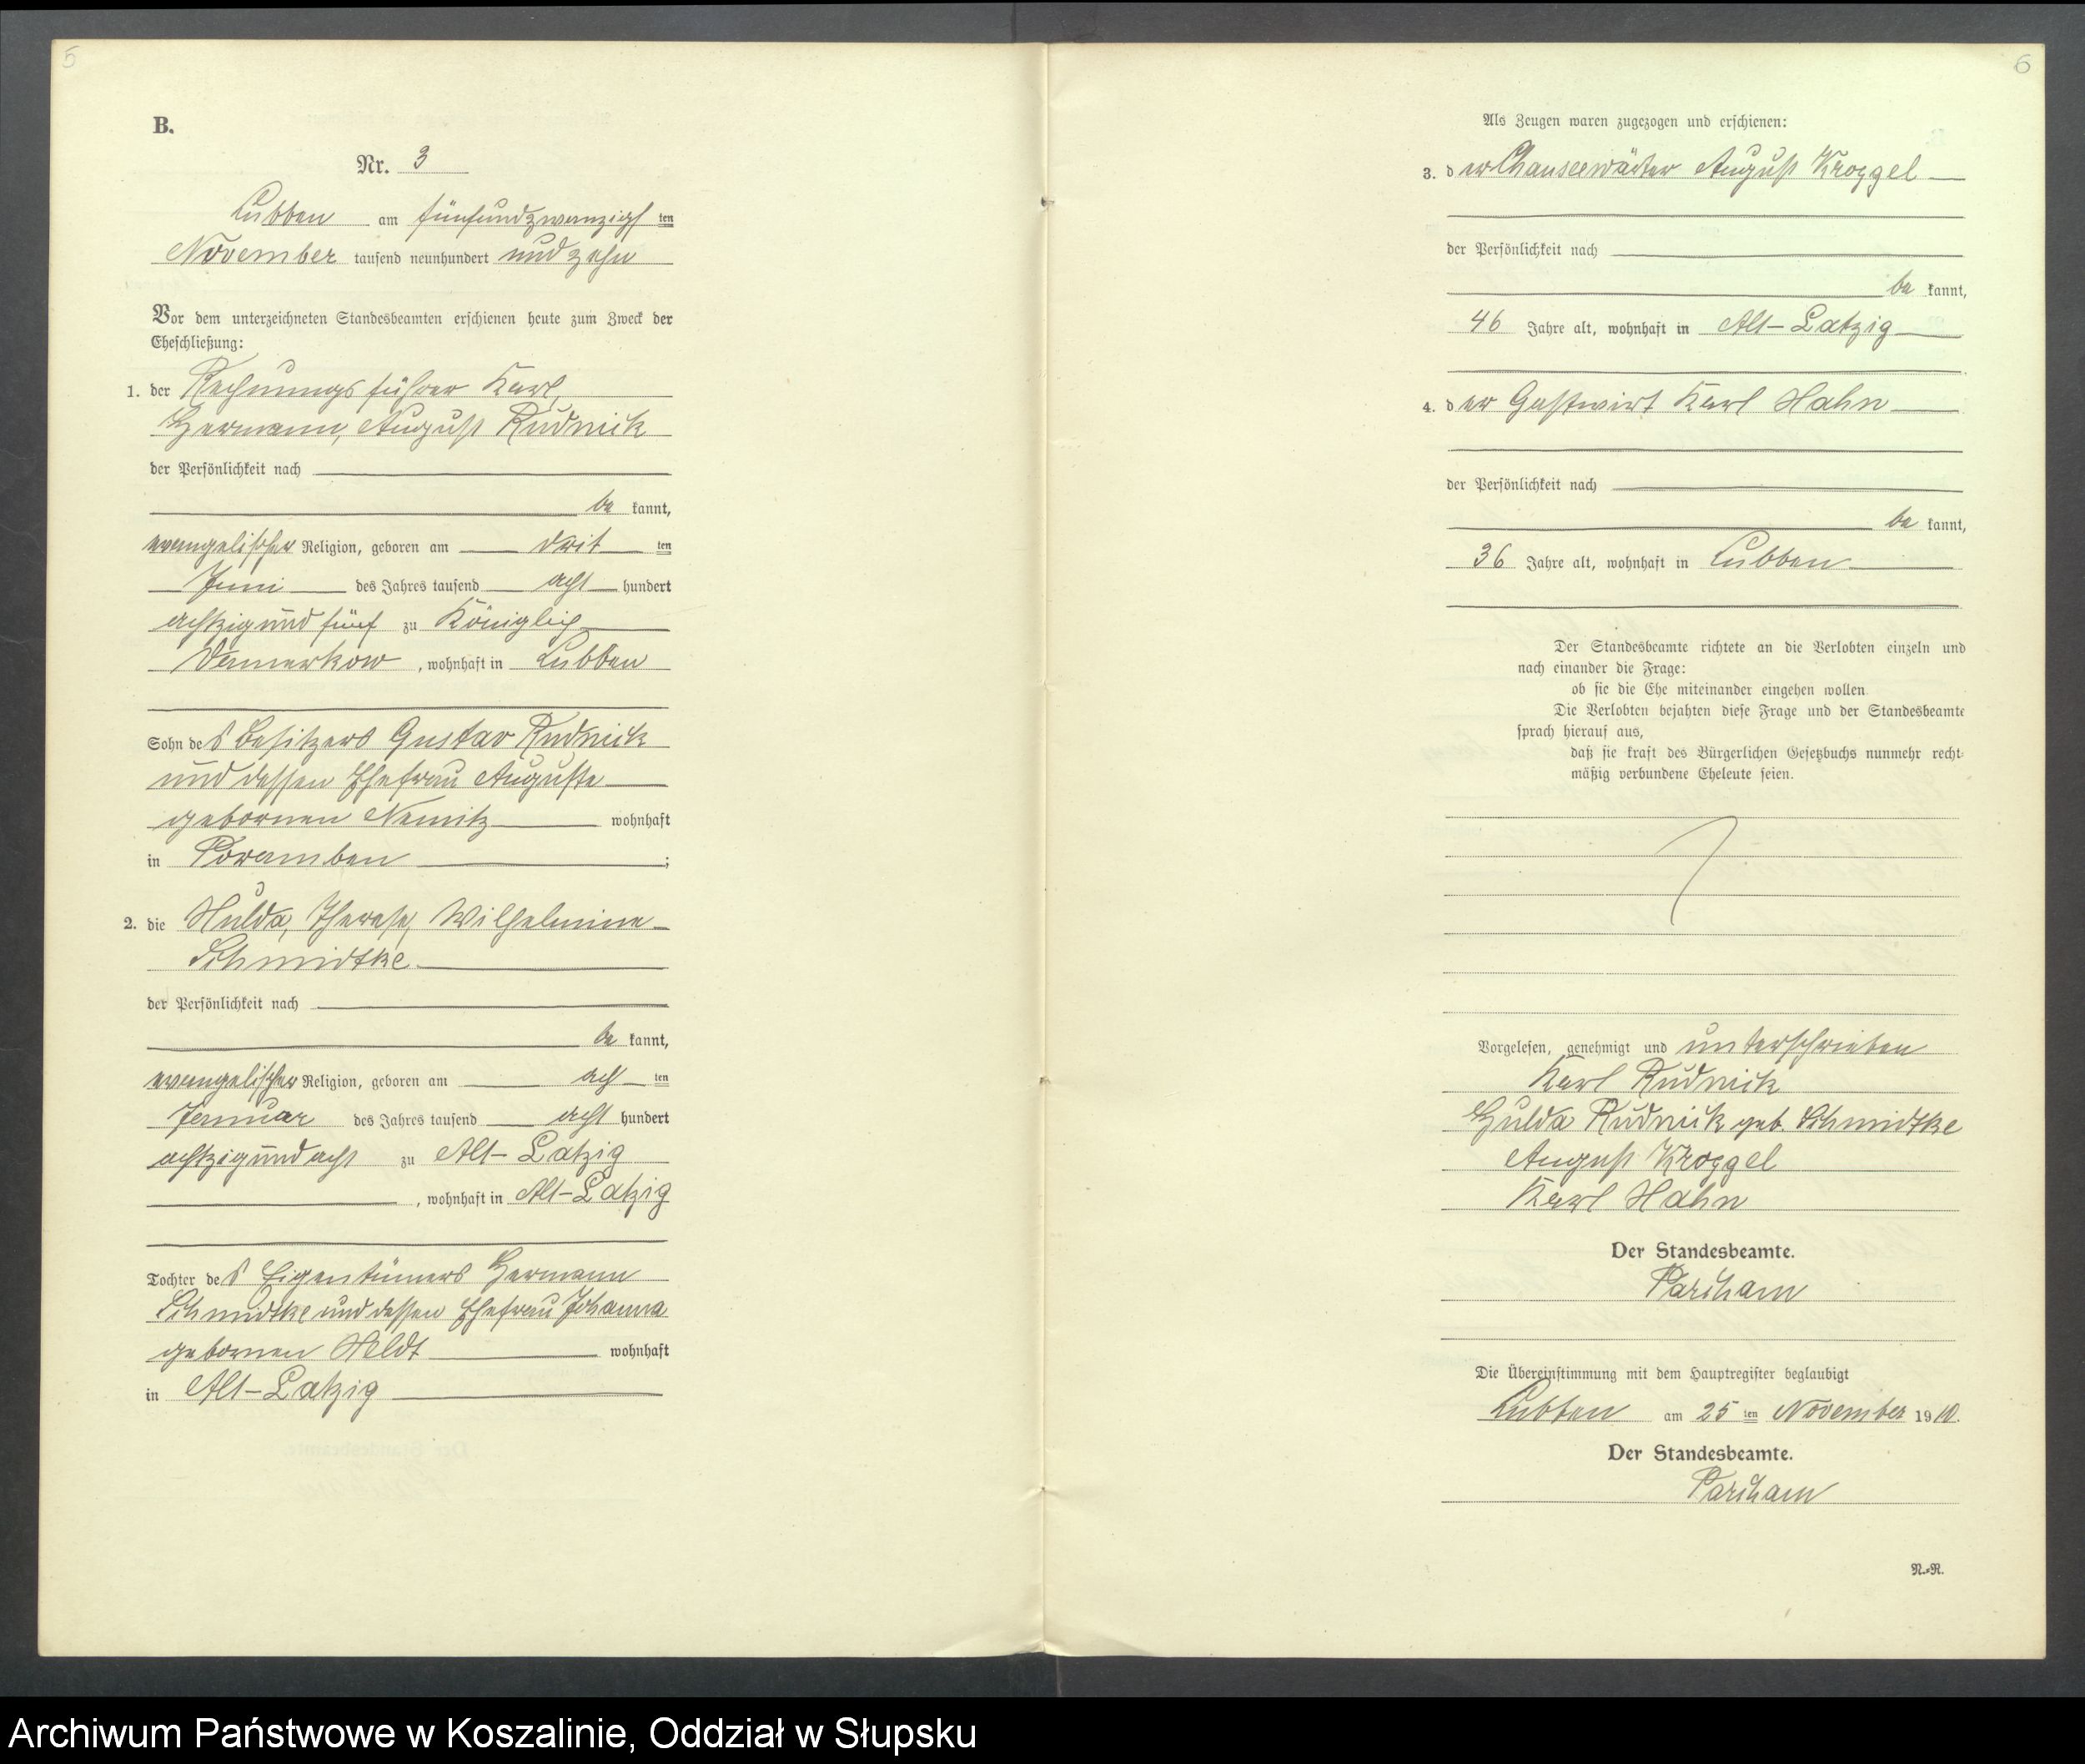 5
B.
Nr. 3
Lubben am fünfundzwanzigsten
November tausend neunhundert und zehn
Vor dem unterzeichneten Standesbeamten erschienen heute zum Zweck der
Eheschließung:
1. der Rechnungsführer Karl,
Hermann, August Rudnick
der Persönlichkeit nach
be kannt,
evangelischer Religion, geboren am dritten
Juni des Jahres tausend acht hundert
achtzig und fünf zu Königlich
Damerkow, wohnhaft in Lubben
Sohn des Besitzers Gustav Rudnick
und dessen Ehefrau Auguste
gebornen Nemitz wohnhaft
in Poramben;
2. die Hulda, Therese, Wilhelmine
Schmidtke
der Persönlichkeit nach
be kannt,
evangelischer Religion, geboren am achten
Januar des Jahres tausend acht hundert
achtzig und acht zu Alt-Latzig
, wohnhaft in Alt-Latzig
Tochter des Eigentümers Hermann
Schmidtke und dessen Ehefrau Johanna
gebornen Heldt wohnhaft
in Alt-Latzig
6
Als Zeugen waren zugezogen und erschienen:
3. der Chauseewärter August Kroggel
der Persönlichkeit nach
be kannt,
46 Jahre alt, wohnhaft in Alt-Latzig
4. der Gastwirt Karl Hahn
der Persönlichkeit nach
be kannt,
36 Jahre alt, wohnhaft in Lubben
Der Standesbeamte richtete an die Verlobten einzeln und
nach einander die Frage:
ob sie die Ehe miteinander eingehen wollen.
Die Verlobten bejahten diese Frage und der Standesbeamte
sprach hierauf aus,
daß sie kraft des Bürgerlichen Gesetzbuchs nunmehr recht-
mäßig verbundene Eheleute seien.
Vorgelesen, genehmigt und unterschrieben
Karl Rudnick
Hulda Rudnick geb. Schmidtke
August Kroggel
Karl Hahn
Der Standesbeamte.
Parcham
Die Übereinstimmung mit dem Hauptregister beglaubigt
Lubben am 25 ten November 1910.
Der Standesbeamte.
Parcham
N.=R.
Archiwum Państwowe w Koszalinie, Oddział w Słupsku